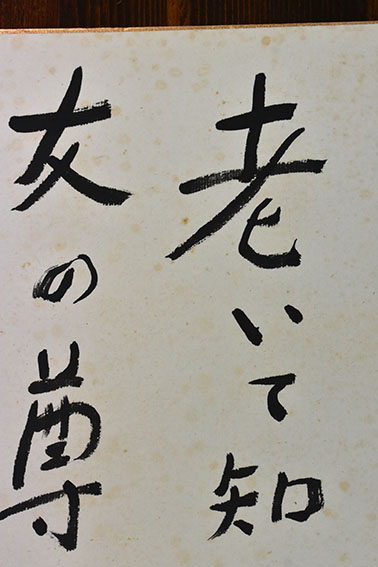 老いて知
友の尊